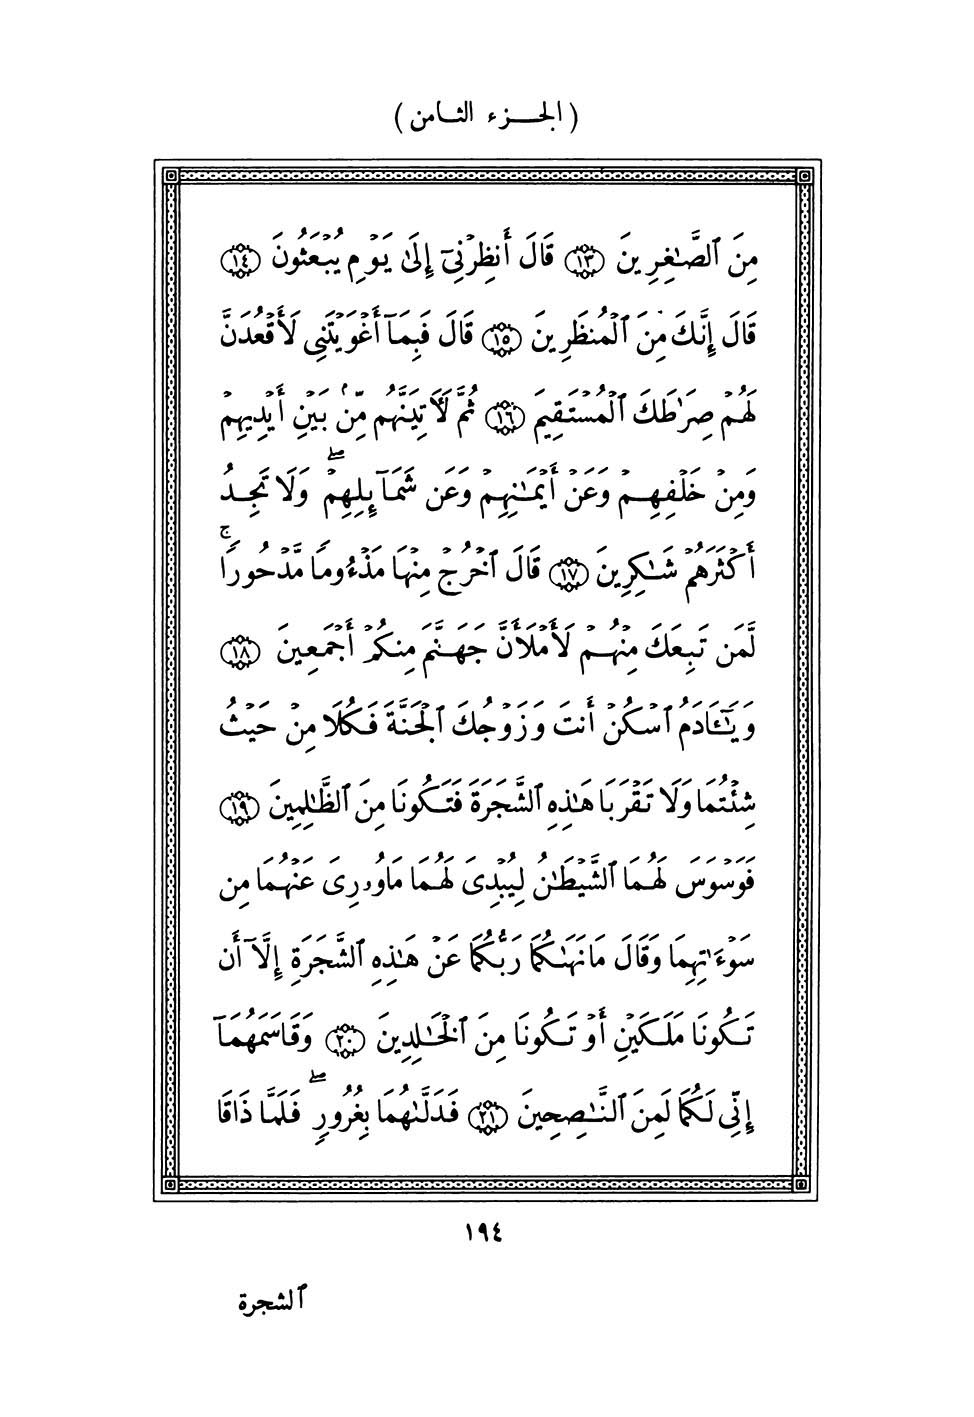 (الجزء الثامن)
مِنَ ٱلصَّٰغِرِينَ ١٣ قَالَ أَنظِرْنِىٓ إِلَىٰ يَوْمِ يُبْعَثُونَ ١٤
قَالَ إِنَّكَ مِنَ ٱلْمُنظَرِينَ ١٥ قَالَ فَبِمَآ أَغْوَيْتَنِى لَأَقْعُدَنَّ
لَهُمْ صِرَٰطَكَ ٱلْمُسْتَقِيمَ ١٦ ثُمَّ لَأٓتِيَنَّهُم مِّنۢ بَيْنِ أَيْدِيهِمْ
وَمِنْ خَلْفِهِمْ وَعَنْ أَيْمَٰنِهِمْ وَعَن شَمَآئِلِهِمْ ۖ وَلَا تَجِدُ
أَكْثَرَهُمْ شَٰكِرِينَ ١٧ قَالَ ٱخْرُجْ مِنْهَا مَذْءُومًا مَّدْحُورًا ۚ
لَّمَن تَبِعَكَ مِنْهُمْ لَأَمْلَأَنَّ جَهَنَّمَ مِنكُمْ أَجْمَعِينَ ١٨
وَيَٰٓـَٔادَمُ ٱسْكُنْ أَنتَ وَزَوْجُكَ ٱلْجَنَّةَ فَكُلَا مِنْ حَيْثُ
شِئْتُمَا وَلَا تَقْرَبَا هَٰذِهِ ٱلشَّجَرَةَ فَتَكُونَا مِنَ ٱلظَّٰلِمِينَ ١٩
فَوَسْوَسَ لَهُمَا ٱلشَّيْطَٰنُ لِيُبْدِىَ لَهُمَا مَا وُۥرِىَ عَنْهُمَا مِن
سَوْءَٰتِهِمَا وَقَالَ مَا نَهَىٰكُمَا رَبُّكُمَا عَنْ هَٰذِهِ ٱلشَّجَرَةِ إِلَّآ أَن
تَكُونَا مَلَكَيْنِ أَوْ تَكُونَا مِنَ ٱلْخَٰلِدِينَ ٢٠ وَقَاسَمَهُمَآ
إِنِّى لَكُمَا لَمِنَ ٱلنَّٰصِحِينَ ٢١ فَدَلَّىٰهُمَا بِغُرُورٍ ۖ فَلَمَّا ذَاقَا
١٩٤
ٱلشجرة